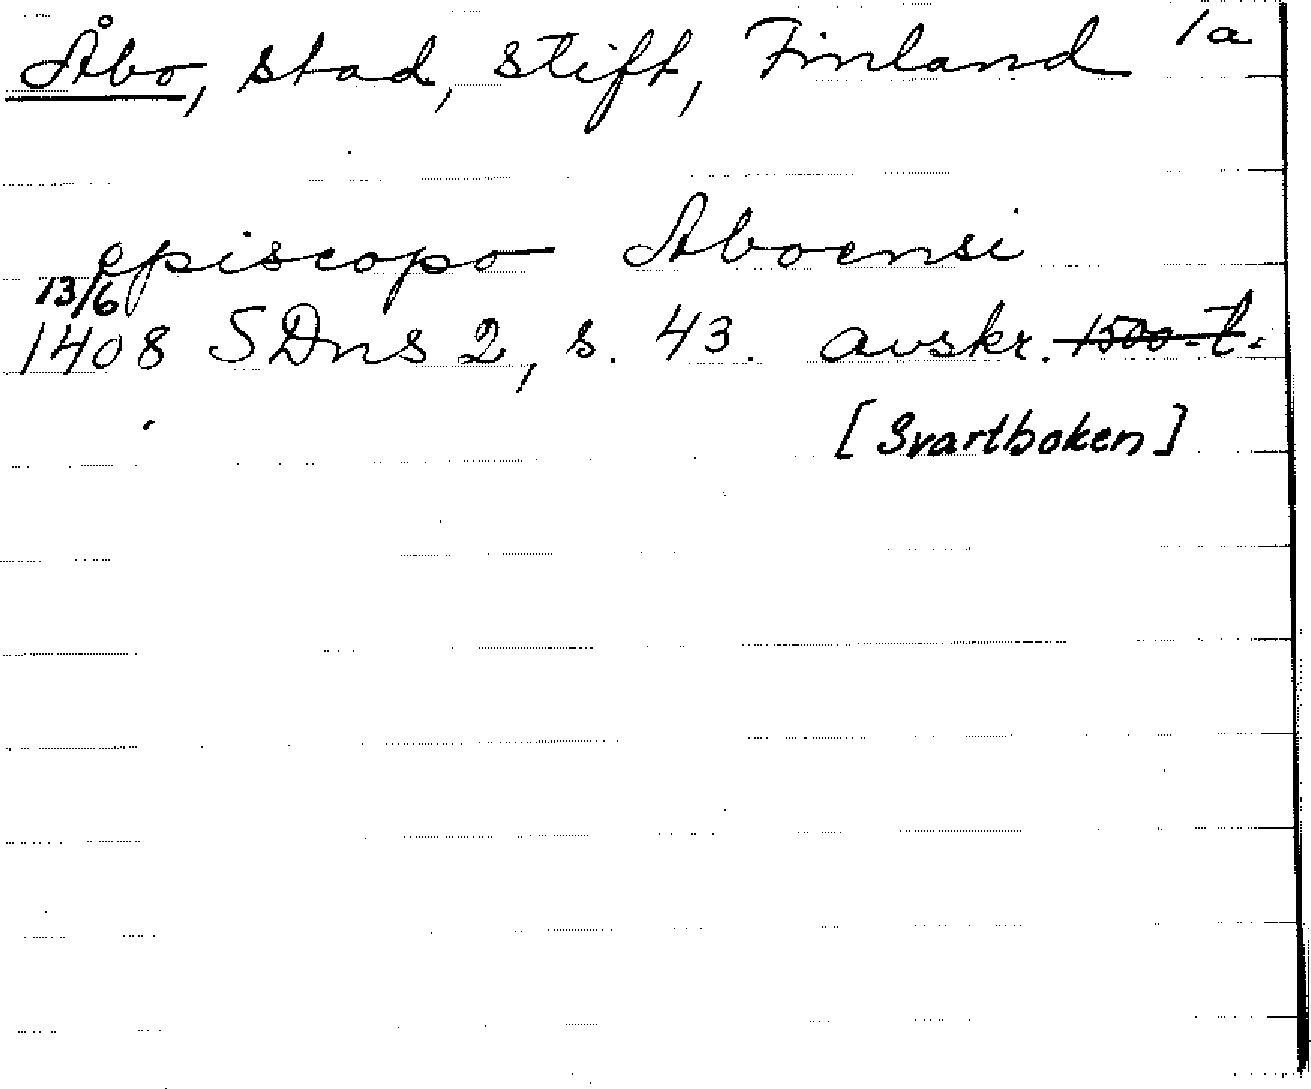 Åbo, stad, stift, Finland 1a
episcopo Aboensi
13/6
1408 SDns 2, s. 43. avskr. 1500-t.
[Svartboken]